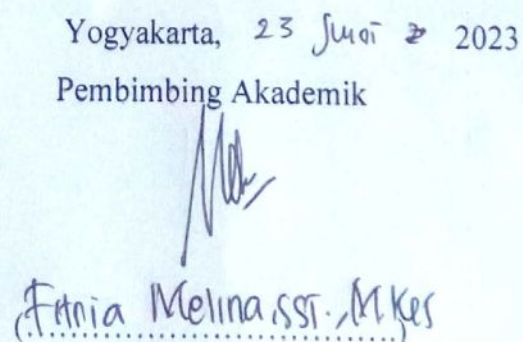 Yogyakarta, 23 Juni 2023
Pembimbing Akademik
(Fitnia Melina, SST., M.Kes